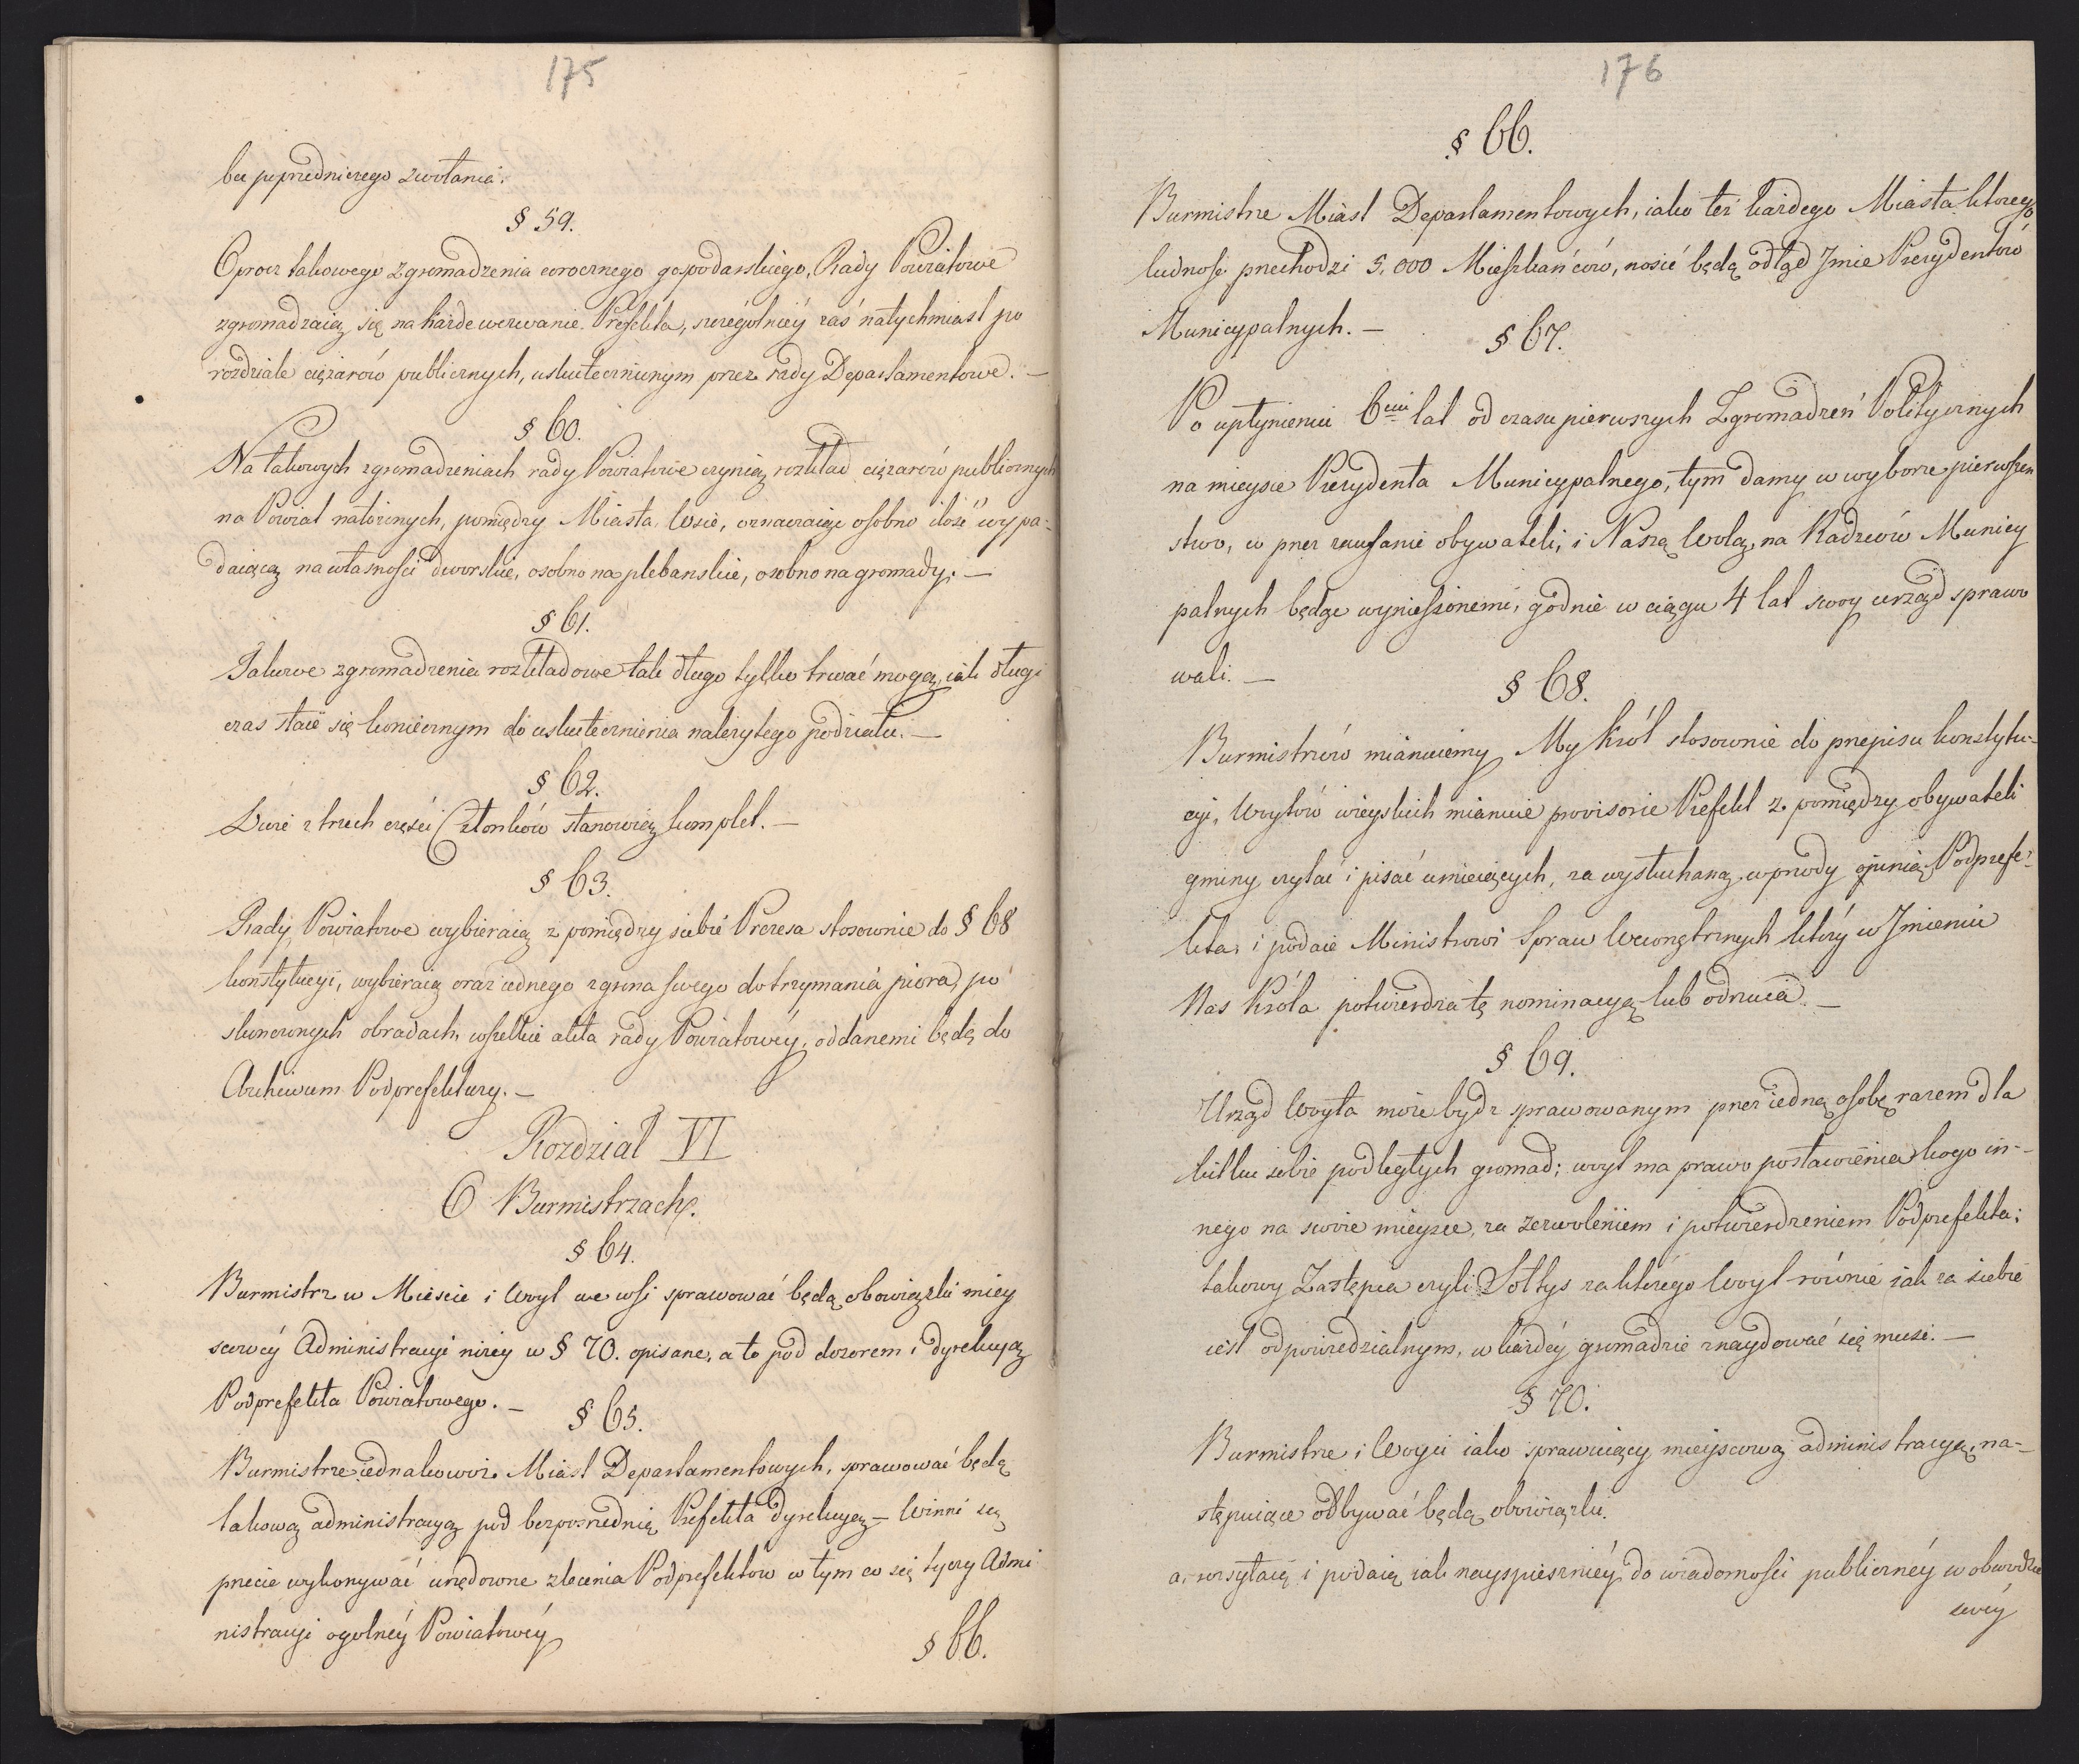 175
bez poprzedniczego zwołania.
§ 59.
Oprocz takowego zgromadzenia corocznego gospodarskiego, Rady Powiatowe
zgromadzaią się na każde wezwanie Prefekta, szczególniéy zaś natychmiast po
rozdziale ciężarów publicznych, uskutecznionym przez rady Departamentowe. —
§ 60.
Na takowych zgromadzeniach rady Powiatowe czynią rozkład ciężarów publicznych
na Powiat nałożonych, pomiędzy Miasta, Wsie, oznaczaiąc osobno ilość wypa-
daiącą na własności dworskie, osobno na plebanskie, osobno na gromady. —
§ 61.
Takowe zgromadzenia rozkładowe tak długo tylko trwać mogą, iak długi
czas staie się koniecznym do uskutecznienia należytego podziału. —
§ 62.
Dwie z trzech części Członków stanowią komplet. —
§ 63.
Rady Powiatowe wybieraią z pomiędzy siebie Prezesa stosownie do § 68
konstytucyi, wybieraią oraz iednego z grona swego do trzymania piora, po
skonczonych obradach, wszelkie akta rady Powiatowéy, oddanemi będą do
Archiwum Podprefektury. —
Rozdział VI
O Burmistrzach.
§ 64.
Burmistrz w Mieście i Woyt we wsi sprawować będą obowiązki miey
scowéy Administracyi niżey w § 70. opisane, a to pod dozorem i dyrekcyą
Podprefekta Powiatowego. —
§ 65.
Burmistrze iednakowoż Miast Departamentowych, sprawować będą
takową administracyą pod bezpośrednią Prefekta dyrekcyą — Winni są
przecie wykonywać urzędowne zlecenia Podprefektów w tym co się tyczy Admi
nistracyi ogolnéy Powiatowéy
§ 66.
176
§ 66.
Burmistrze Miast Departamentowych, iako też każdego Miasta którego
ludność przechodzi 5,000 Mieszkańców, nosić będą odtąd Jmie Prezydentów
Municypalnych. —
§ 67.
Po upłynieniu 6ciu lat od czasu pierwszych Zgromadzeń Politycznych
na mieysce Prezydenta Municypalnego, tym damy w wyborze pierwszen
stwo, co przez zaufanie obywateli, i Naszą Wolą, na Radzców Municy
palnych będąc wyniesionemi, godnie w ciągu 4 lat swoy urząd sprawo
wali. —
§ 68.
Burmistrzów mianuiemy My Król stosownie do przepisu konstytu-
cyi, Woytów wieyskich mianuie provisorie Prefekt z pomiędzy obywateli
gminy czytać i pisać umieiących, za wysłuchaną wprzody opinią Podprefe-
kta, i podaie Ministrowi Spraw Wewnętrznych który w Jmieniu
Nas Króla potwierdza tę nominacyą lub odrzuca. —
§ 69.
Urząd Woyta może bydź sprawowanym przez iedną osobę razem dla
kilku sobie podległych gromad; woyt ma prawo postawienia kogo in-
nego na swoie mieysce, za zezwoleniem i potwierdzeniem Podprefekta;
takowy Zastępca czyli Sołtys za którego Woyt równie iak za siebie
iest odpowiedzialnym, w każdéy gromadzie znaydować się musi. —
§ 70.
Burmistrze i Woyci iako sprawuiący mieyscową administracyą, na-
stępuiące odbywać będą obowiązki.
a, rozsyłaią i podaią iak nayspieszniéy do wiadomości publicznéy w obwodzie
swéy